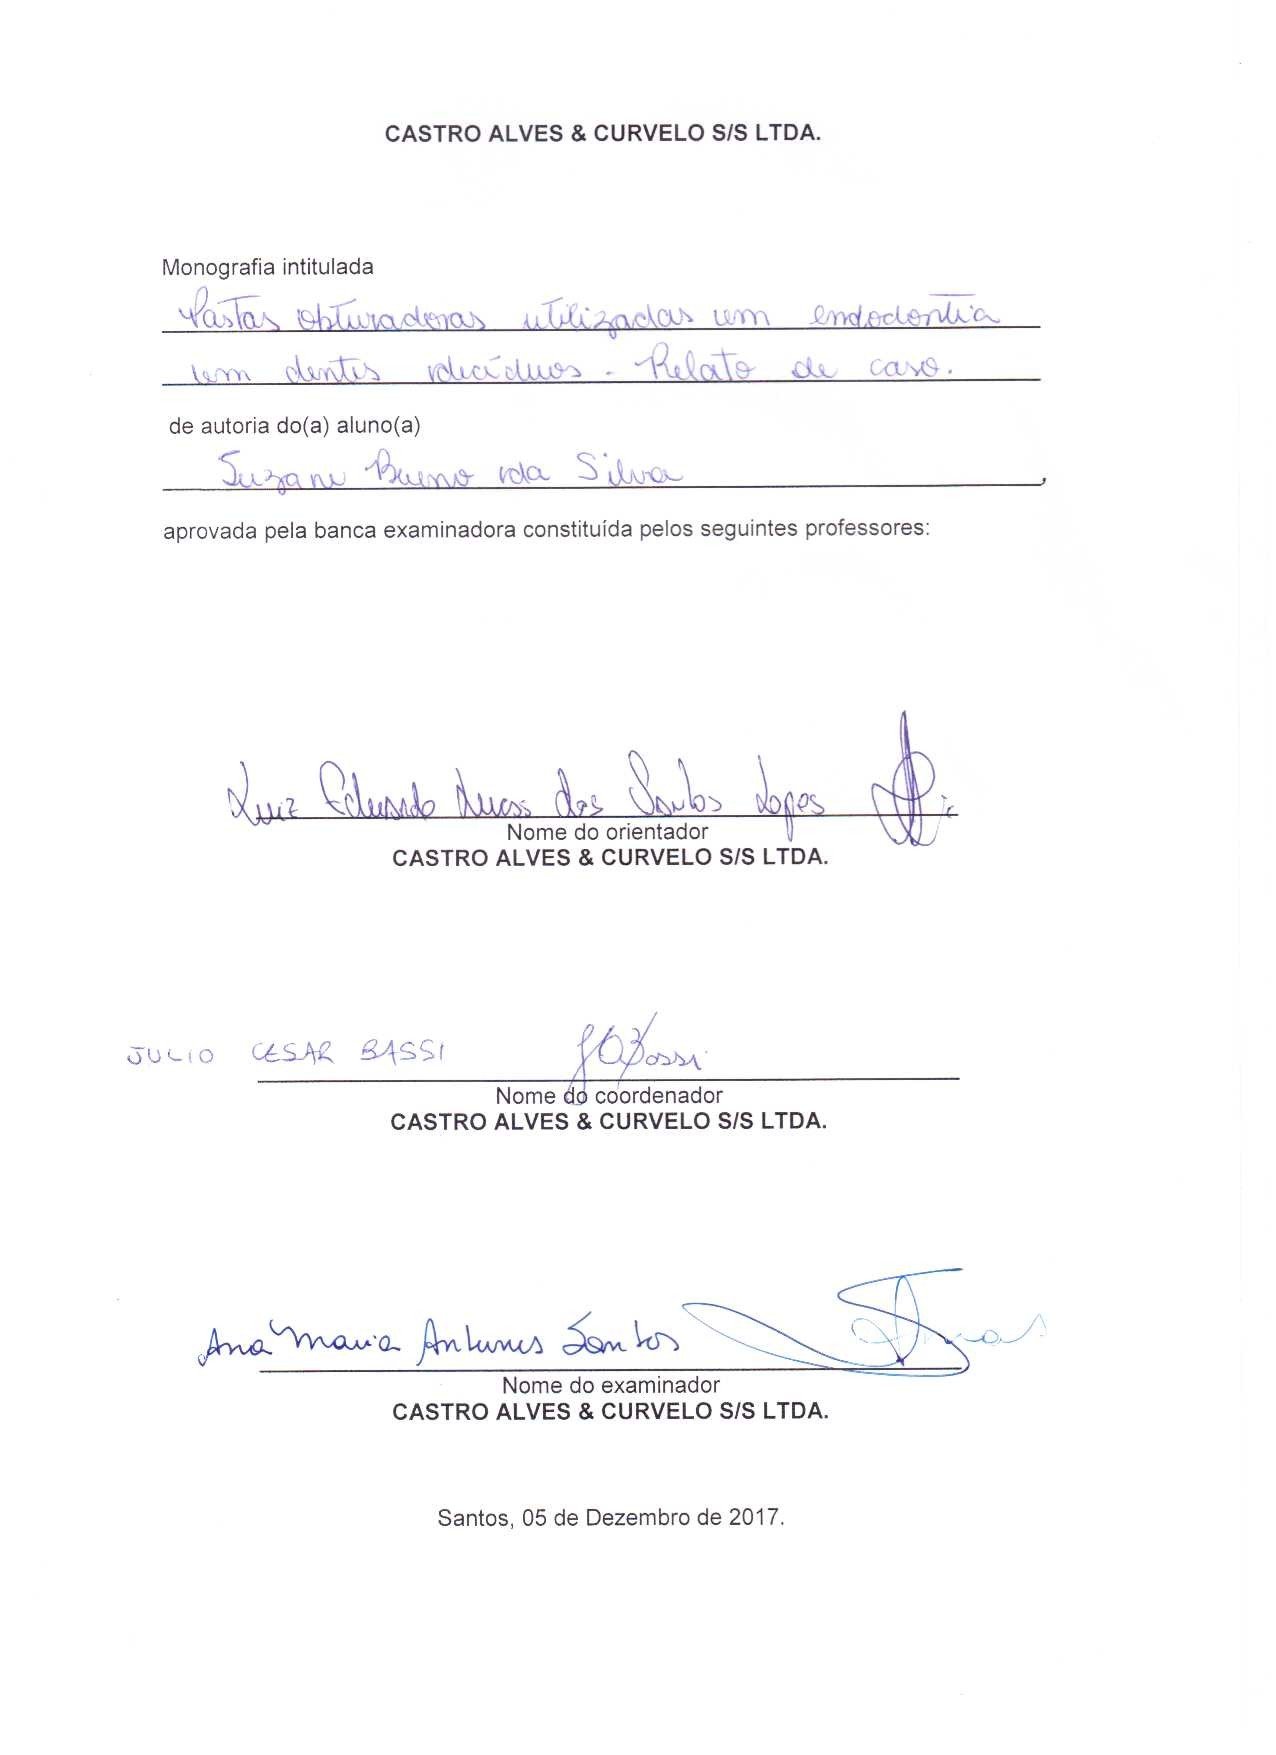 CASTRO ALVES & CURVELO S/S LTDA.
Monografia intitulada
Pastas obturadoras utilizadas em endodontia
em dentes decíduos - Relato de caso.
de autoria do(a) aluno(a)
Suzani Bueno da Silva,
aprovada pela banca examinadora constituída pelos seguintes professores:
Luiz Eduardo Lucas dos Santos Lopes
Nome do orientador
CASTRO ALVES & CURVELO S/S LTDA.
JULIO CESAR BASSI
Nome do coordenador
CASTRO ALVES & CURVELO S/S LTDA.
Ana Maria Antunes Santos
Nome do examinador
CASTRO ALVES & CURVELO S/S LTDA.
Santos, 05 de Dezembro de 2017.